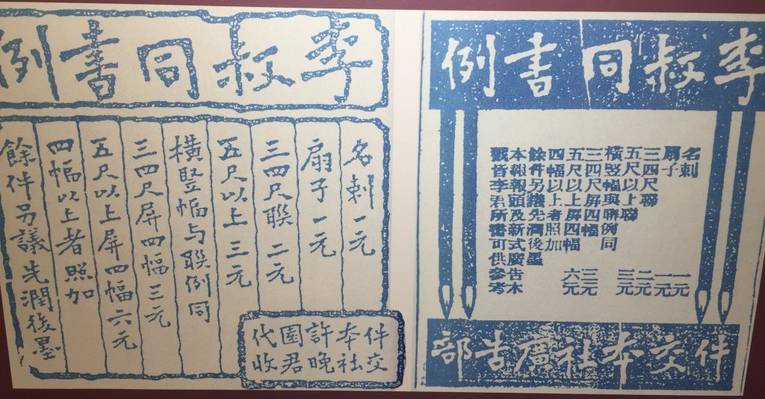 李叔同書例
名刺一元
扇子一元
三四尺聯二元
五尺以上三元
橫豎幅与聯例同
三四尺屏四幅三元
五尺以上屏四幅六元
四幅以上者照加
餘件另議先潤後墨
件交
本社
許晚
園君
代收
李叔同書例
名刺 一元
扇子 一元
三四尺聯 二元
五尺以上聯 三元
橫豎幅與聯例同
三四尺屏四幅 三元
五尺以上屏四幅 六元
四幅以上者照加
餘件另議先潤後墨
本報報頭及新式廣告木
戳皆李君所書可供參考
件交本社廣告部